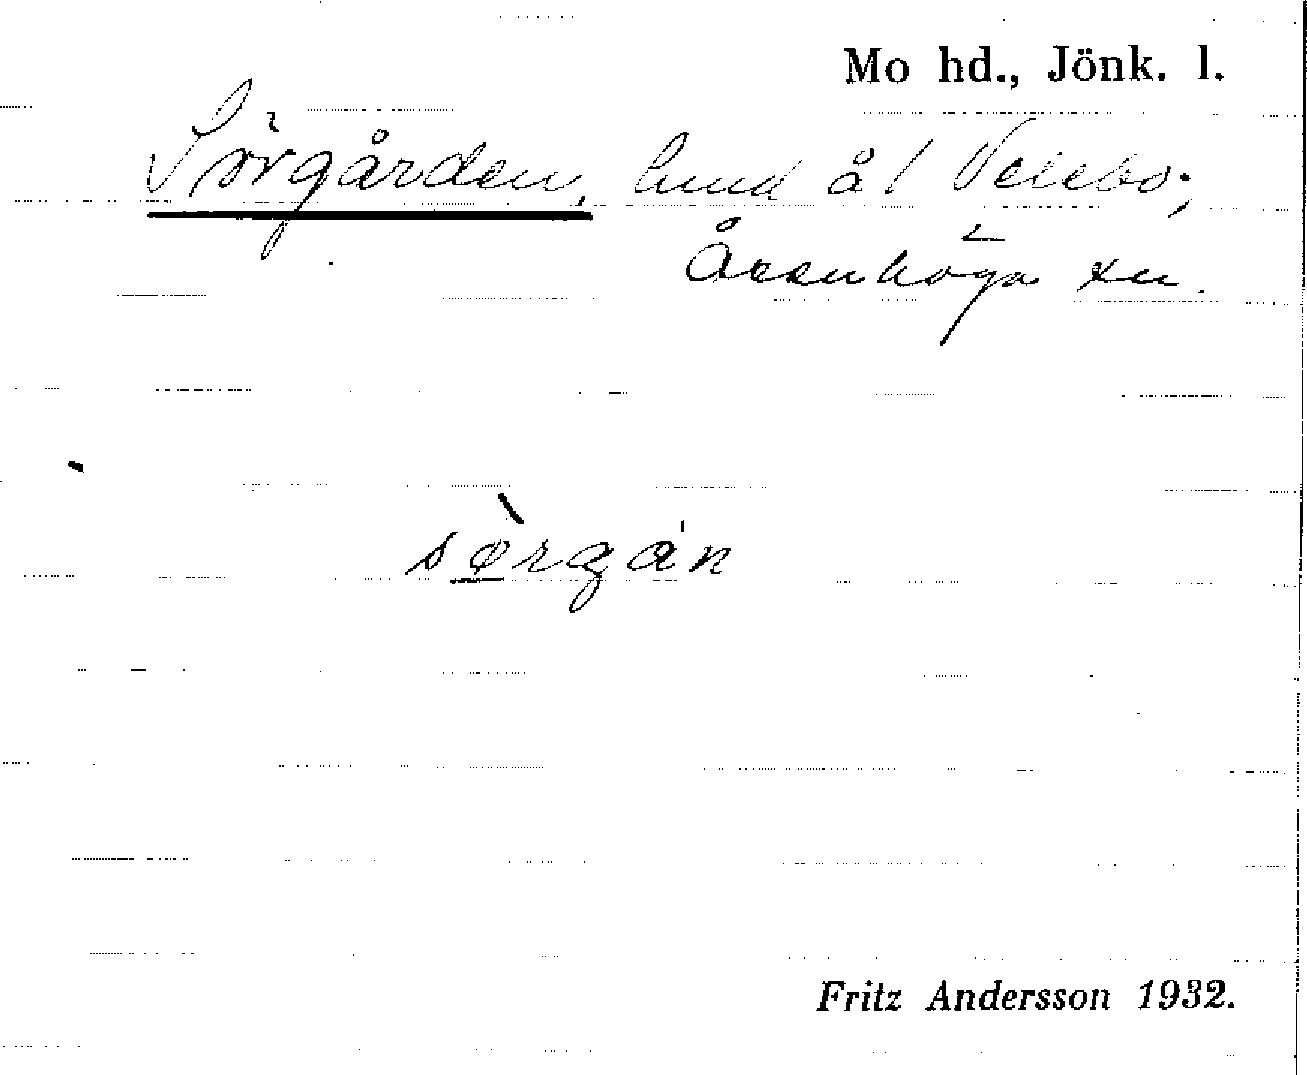 Mo hd., Jönk. l.
Sörgården, hmd å
Åsenhöga sn.
sø̀rgán
Fritz Andersson 1932.